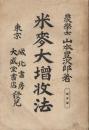 農學士山本豊次郎著
米麥大增收法
東京
成化書房
大盛堂書店發兌